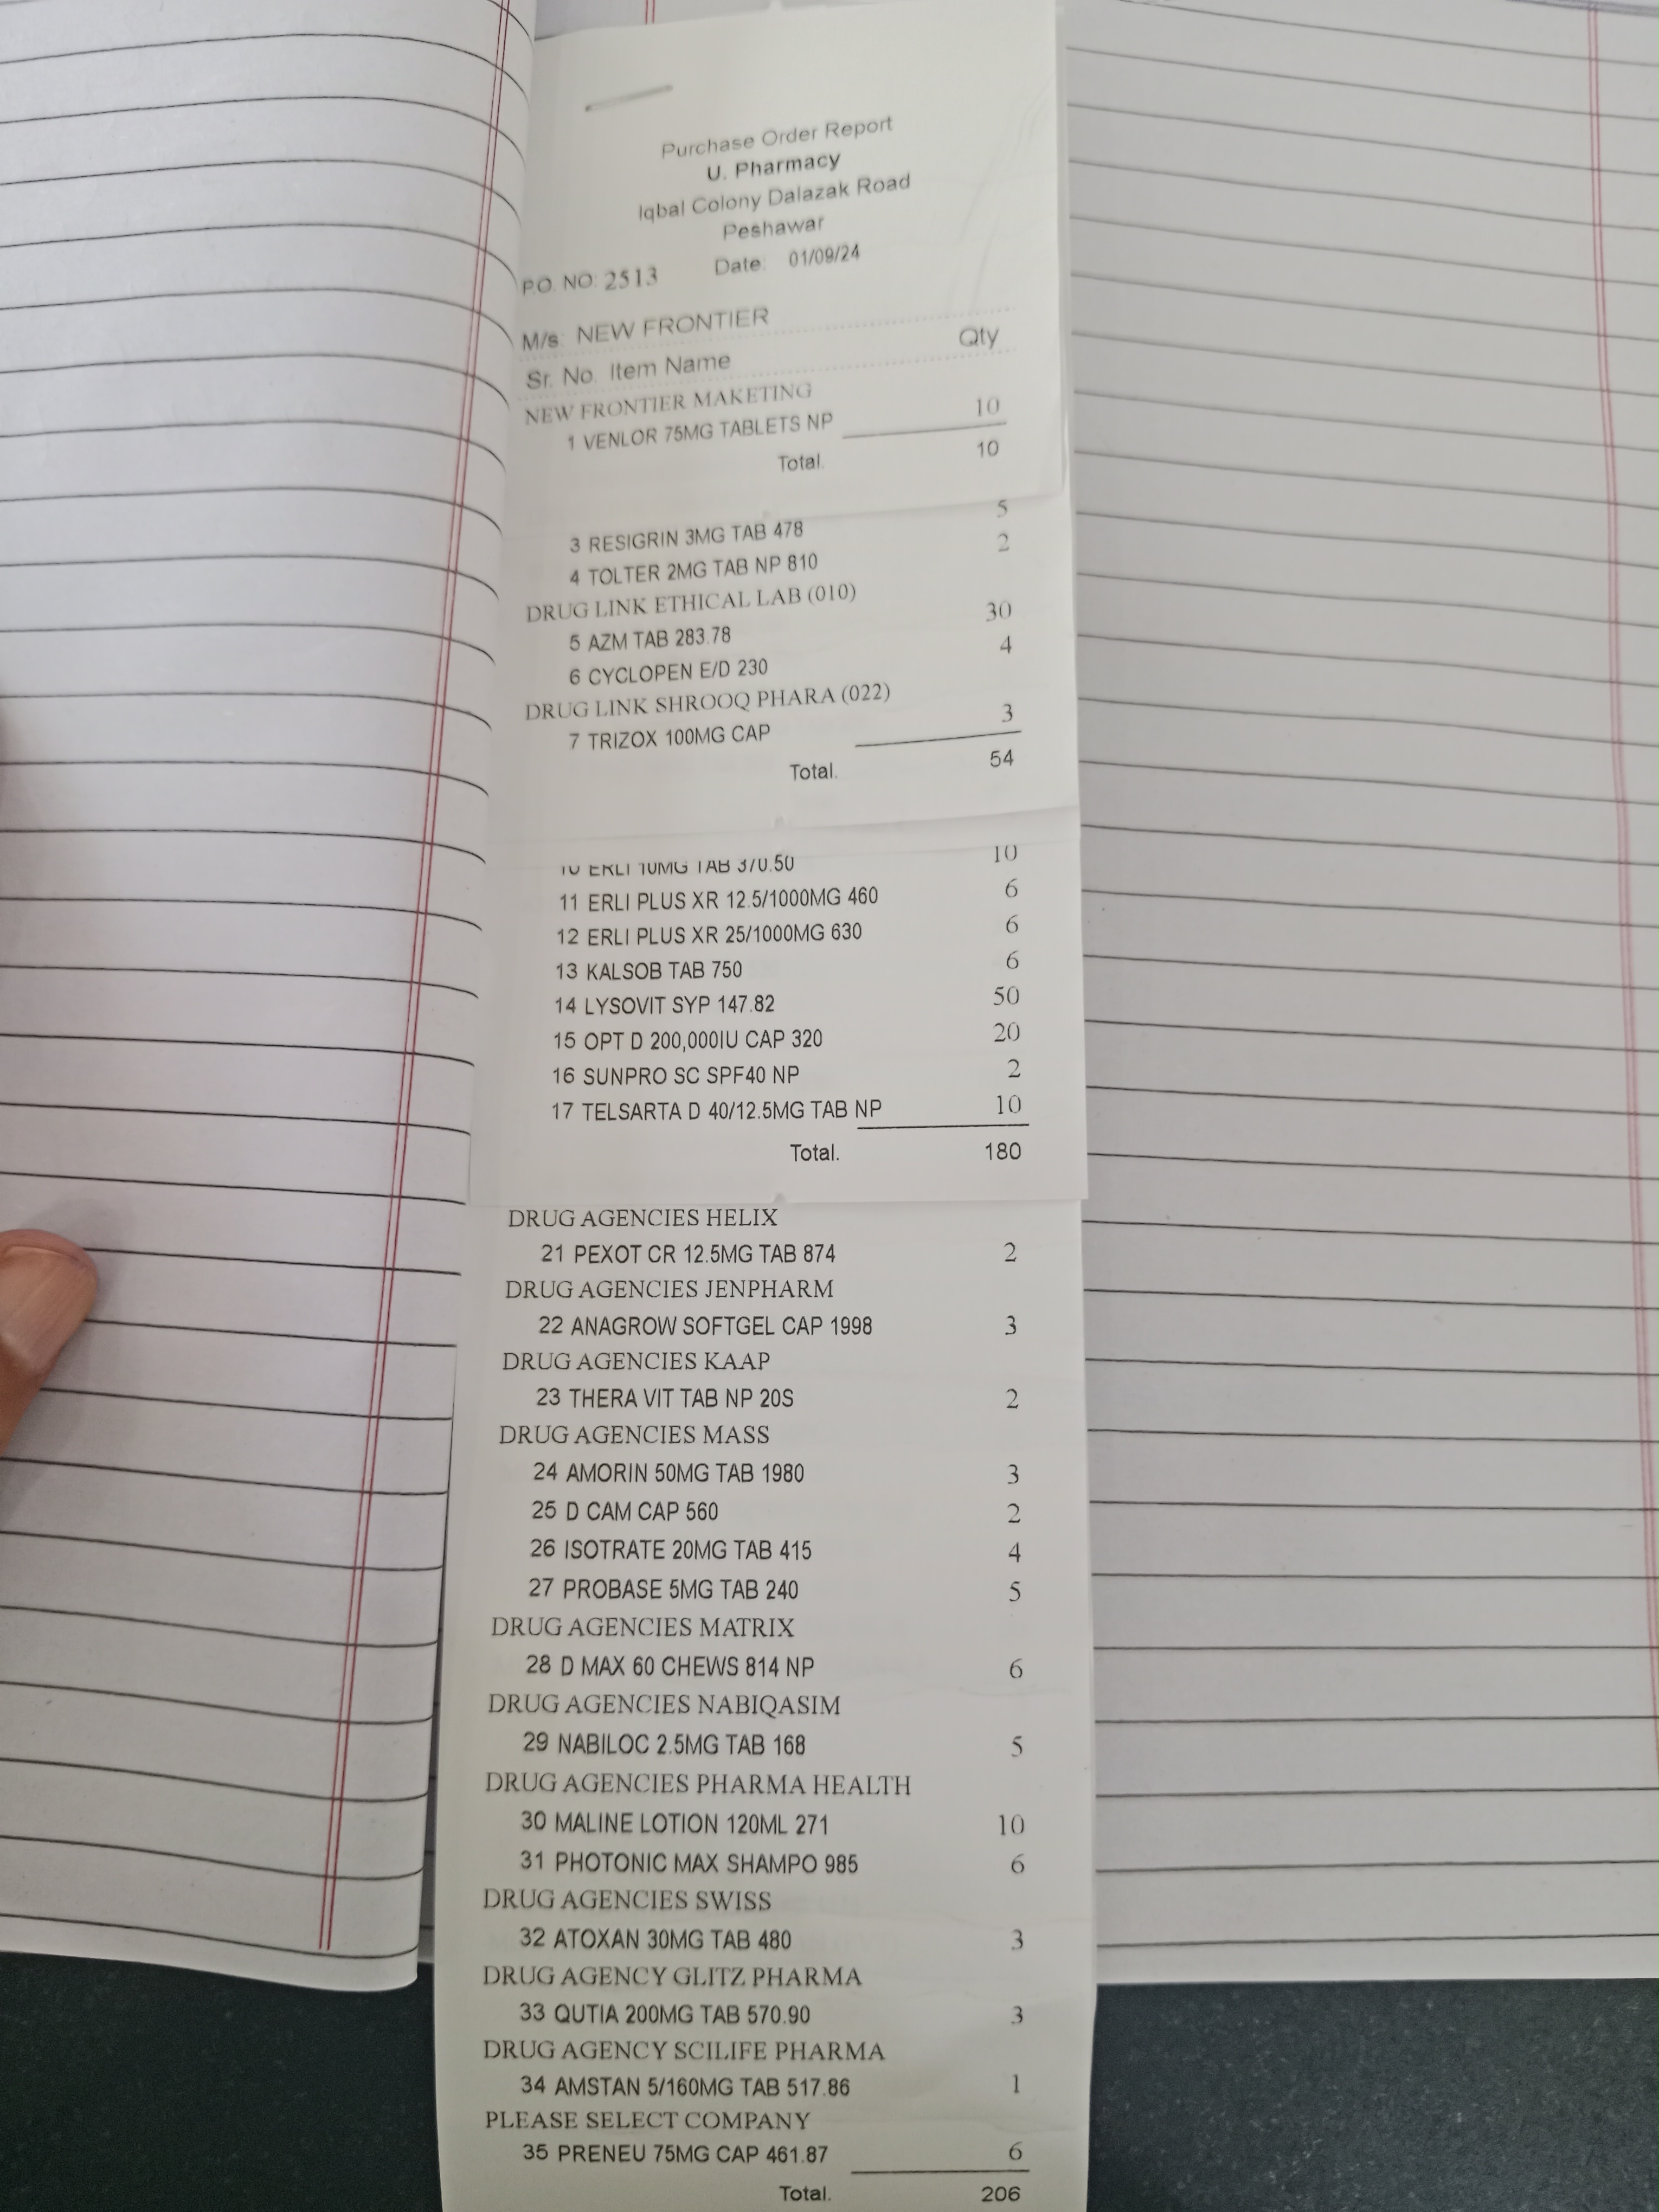 Purchase Order Report
U. Pharmacy
Iqbal Colony Dalazak Road
Peshawar
PO. NO: 2513 Date: 01/09/24
M/s: NEW FRONTIER
Sr. No. Item Name Qty
NEW FRONTIER MAKETING
1 VENLOR 75MG TABLETS NP 10
Total. 10
3 RESIGRIN 3MG TAB 478 5
4 TOLTER 2MG TAB NP 810 2
DRUG LINK ETHICAL LAB (010)
5 AZM TAB 283.78 30
6 CYCLOPEN E/D 230 4
DRUG LINK SHROOQ PHARA (022)
7 TRIZOX 100MG CAP 3
Total. 54
10 ERLI 10MG TAB 370.50 10
11 ERLI PLUS XR 12.5/1000MG 460 6
12 ERLI PLUS XR 25/1000MG 630 6
13 KALSOB TAB 750 6
14 LYSOVIT SYP 147.82 50
15 OPT D 200,000IU CAP 320 20
16 SUNPRO SC SPF40 NP 2
17 TELSARTA D 40/12.5MG TAB NP 10
Total. 180
DRUG AGENCIES HELIX
21 PEXOT CR 12.5MG TAB 874 2
DRUG AGENCIES JENPHARM
22 ANAGROW SOFTGEL CAP 1998 3
DRUG AGENCIES KAAP
23 THERA VIT TAB NP 20S 2
DRUG AGENCIES MASS
24 AMORIN 50MG TAB 1980 3
25 D CAM CAP 560 2
26 ISOTRATE 20MG TAB 415 4
27 PROBASE 5MG TAB 240 5
DRUG AGENCIES MATRIX
28 D MAX 60 CHEWS 814 NP 6
DRUG AGENCIES NABIQASIM
29 NABILOC 2.5MG TAB 168 5
DRUG AGENCIES PHARMA HEALTH
30 MALINE LOTION 120ML 271 10
31 PHOTONIC MAX SHAMPO 985 6
DRUG AGENCIES SWISS
32 ATOXAN 30MG TAB 480 3
DRUG AGENCY GLITZ PHARMA
33 QUTIA 200MG TAB 570.90 3
DRUG AGENCY SCILIFE PHARMA
34 AMSTAN 5/160MG TAB 517.86 1
PLEASE SELECT COMPANY
35 PRENEU 75MG CAP 461.87 6
Total. 206